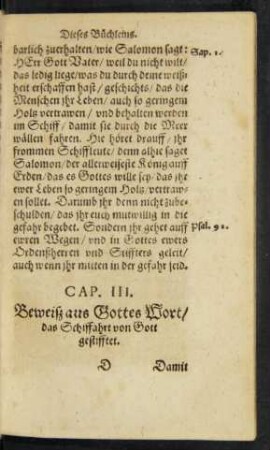 Dieses Büchleins.
barlich zuerhalten/wie Salomon sagt: Sap. 1.
HErr Gott Vater/ weil du nicht wilt/
das ledig liege/was du durch deine weiß⸗
heit erschaffen hast/ geschichts/ das die
Menschen jhr Leben/ auch so geringem
Holz vertrawen/ vnd behalten werden
im Schiff/ damit sie durch die Meer
wällen fahren. Hie höret drauff/ jhr
frommen Schiffleute/ denn alhie saget
Salomon/ der allerweiseste König auff
Erden/ das es Gottes wille sey/ das jhr
ewer Leben so geringem Holz/ vertraw⸗
en sollet. Darumb jhr denn nicht zube⸗
schulden/ das jhr euch mutwillig in die
gefahr begebet. Sondern jhr gehet auff Psal. 91.
ewren Wegen/ vnd in Gottes ewers
Ordenßherren vnd Stiffters geleit/
auch wenn jhr mitten in der gefahr seid.
CAP. III.
Beweiß aus Gottes Wort/
das Schiffahrt von Gott
gestifftet.
D Damit